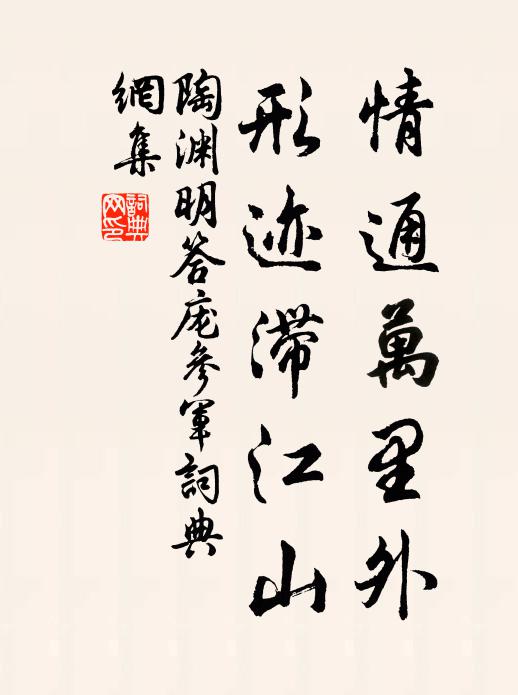 情通萬里外
形迹滞江山
陶渊明答庞參軍詞典
網集
詞典
网印